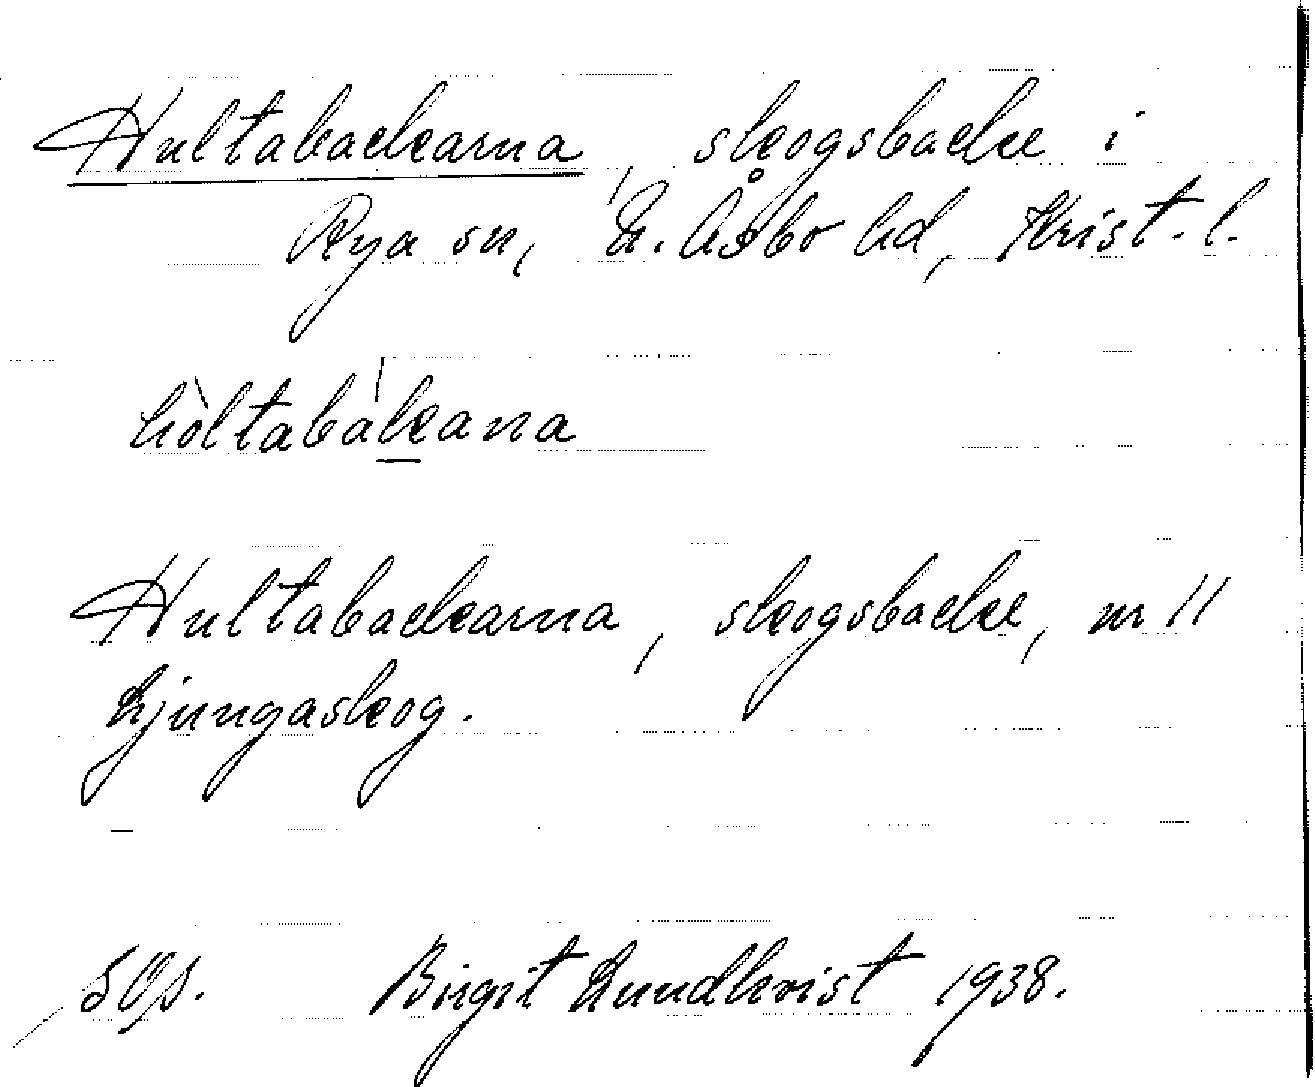 Hultabackarna, skogsbacke i
Rya sn, N. Åsbo hd, Krist. l.
hòltabàkana
Hultabackarna, skogsbacke, nr 11
Ljungaskog.
Birgit Lundkvist 1938.